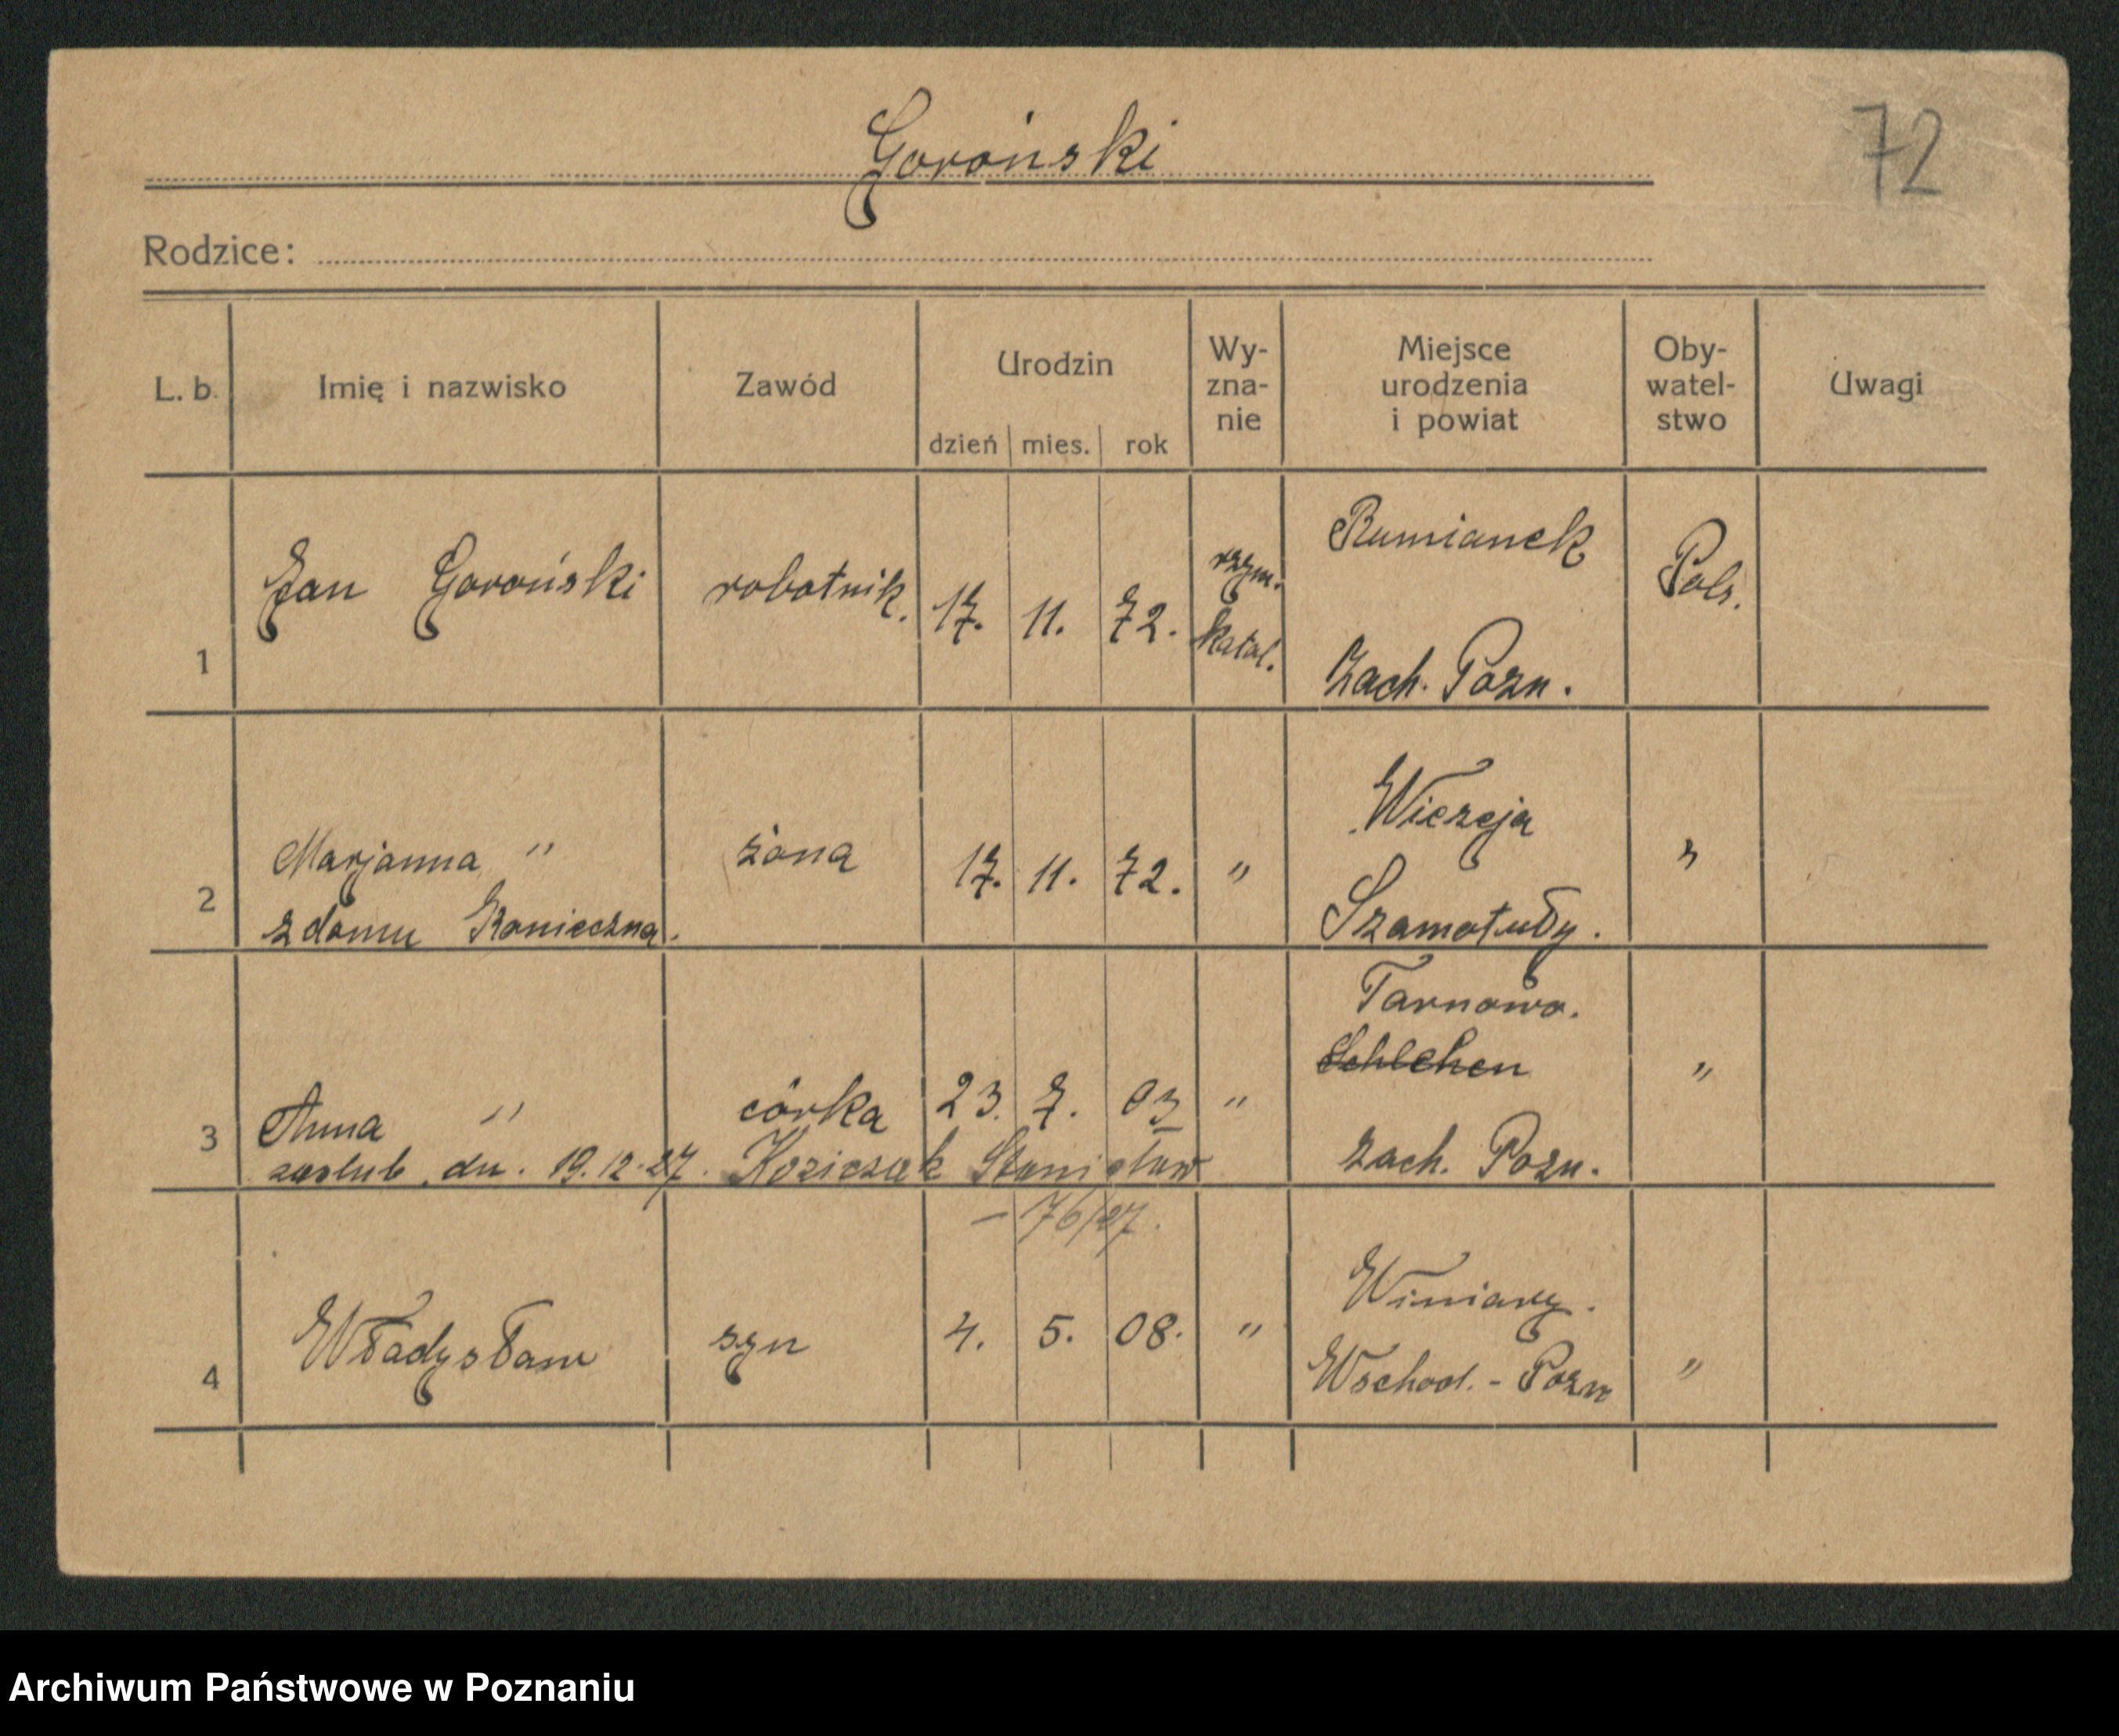 Goroński
72
Rodzice:
L. b.
Imię i nazwisko
Zawód
Urodzin
dzień
mies.
rok
Wy-
zna-
nie
Miejsce
urodzenia
i powiat
Oby-
watel-
stwo
Uwagi
1
Jan Goroński
robotnik.
17.
11.
72.
rzym.
katol.
Rumianek
Zach. Pozn.
Pols.
2
Marjanna "
z domu Konieczna.
żona
17.
11.
72.
"
Wierzeja
Szamotuły.
"
3
Anna "
córka
23.
7.
03
"
Tarnowo.
Schlehen
zach. Pozn.
"
zaślub. dn. 19.12.27. Koziczak Stanisław
- 76/27.
4
Władysław
syn
4.
5.
08.
"
Winiary.
Wschod. - Pozn
"
Archiwum Państwowe w Poznaniu